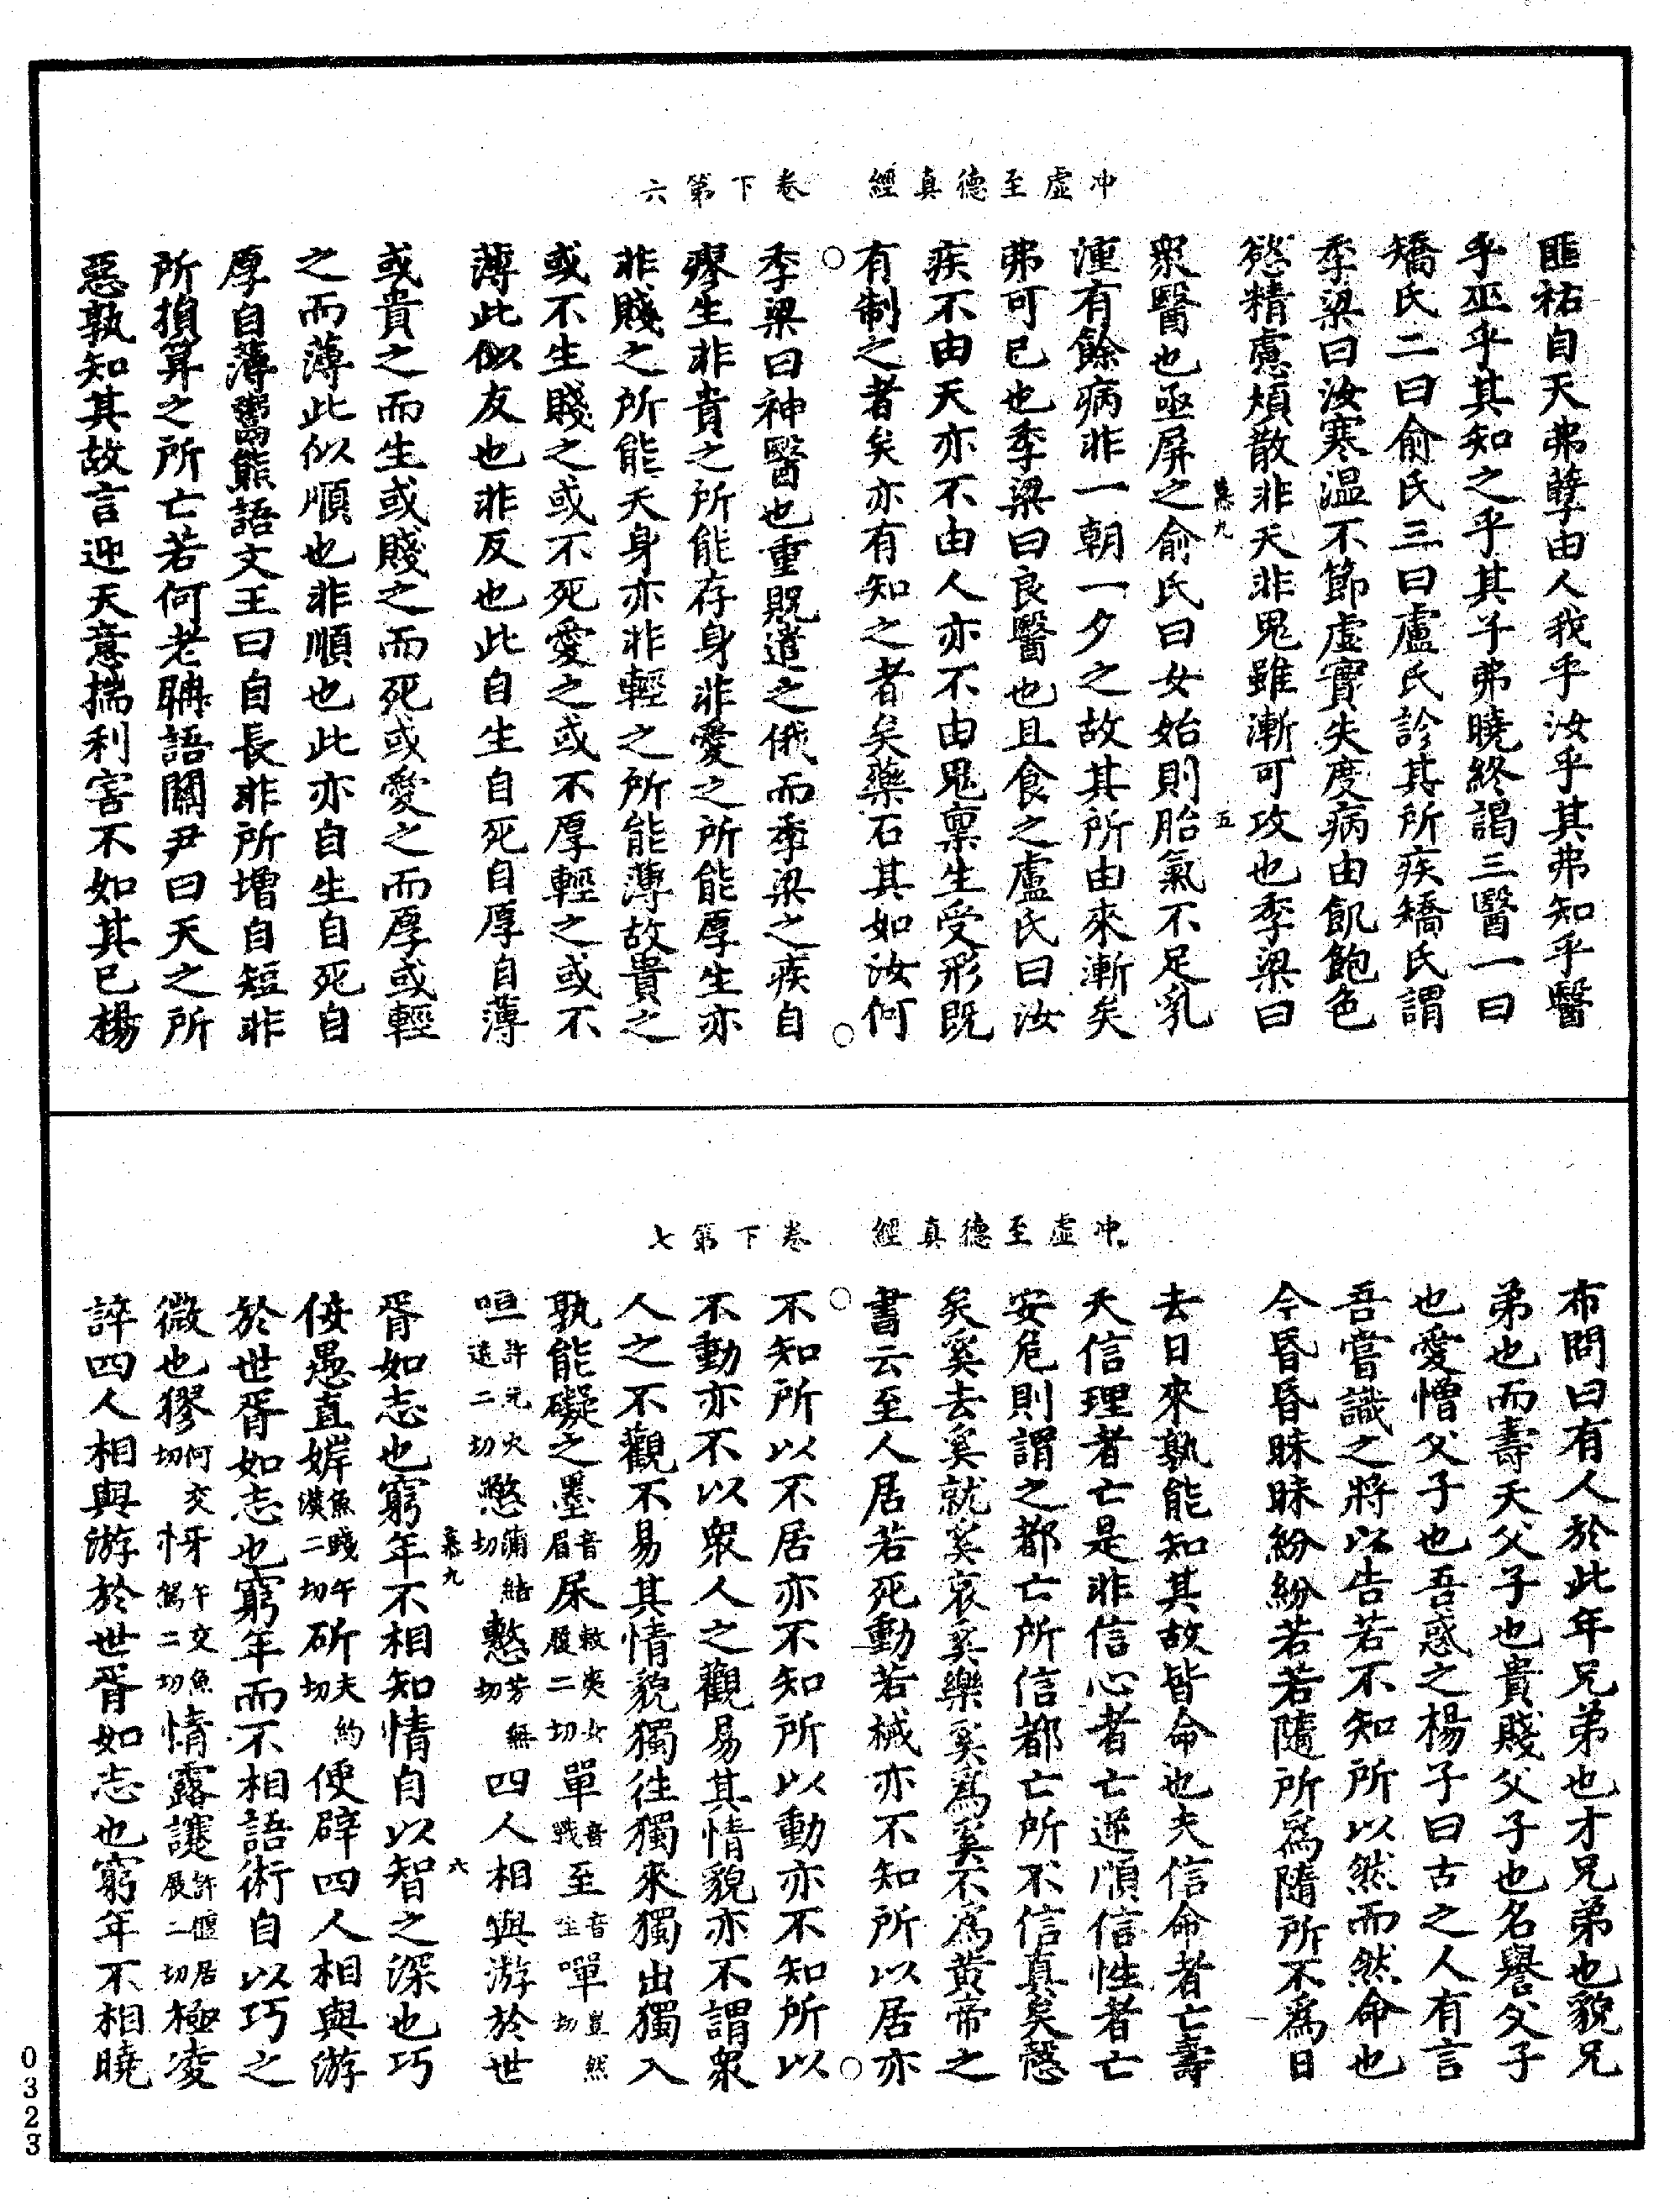 冲虛至德真經　卷下第六
匪祐自天弗孽由人我乎汝乎其弗知乎醫
乎巫乎其知之乎其子弗曉終謁三醫一曰
矯氏二曰俞氏三曰盧氏診其所疾矯氏謂
季梁曰汝寒温不節虛實失度病由飢飽色
慾精慮煩散非天非鬼雖漸可攻也季梁曰
慕九　五
衆醫也亟屏之俞氏曰女始則胎氣不足乳
湩有餘病非一朝一夕之故其所由來漸矣
弗可已也季梁曰良醫也且食之盧氏曰汝
疾不由天亦不由人亦不由鬼稟生受形既
有制之者矣亦有知之者矣藥石其如汝何
季梁曰神醫也重貺遣之俄而季梁之疾自
瘳生非貴之所能存身非愛之所能厚生亦
非賤之所能夭身亦非輕之所能薄故貴之
或不生賤之或不死愛之或不厚輕之或不
薄此似反也非反也此自生自死自厚自薄
或貴之而生或賤之而死或愛之而厚或輕
之而薄此似順也非順也此亦自生自死自
厚自薄鬻熊語文王曰自長非所增自短非
所損筭之所亡若何老聃語關尹曰天之所
惡孰知其故言迎天意揣利害不如其已楊
冲虛至德真經　卷下第七
布問曰有人於此年兄弟也才兄弟也貌兄
弟也而壽夭父子也貴賤父子也名譽父子
也愛憎父子也吾惑之楊子曰古之人有言
吾嘗識之將以告若不知所以然而然命也
今昏昏昧昧紛紛若若隨所爲隨所不爲日
去日來孰能知其故皆命也夫信命者亡壽
夭信理者亡是非信心者亡逆順信性者亡
安危則謂之都亡所信都亡所不信真矣慤
矣奚去奚就奚哀奚樂奚爲奚不爲黃帝之
書云至人居若死動若械亦不知所以居亦
不知所以不居亦不知所以動亦不知所以
不動亦不以衆人之觀易其情貌亦不謂衆
人之不觀不易其情貌獨往獨來獨出獨入
孰能礙之墨音眉尿敕夷女履二切單音戰至音咥嘽齒然切
咺許元火遠二切憋蒲結切憗芳無切四人相與游於世
胥如志也窮年不相知情自以智之深也巧
慕九　六
佞愚直婩魚踐午漢二切斫夫約切便辟四人相與游
於世胥如志也窮年而不相語術自以巧之
微也㺒何交切㤉牙午交魚駕二切情露讓許偃居展二切極凌
誶四人相與游於世胥如志也窮年不相曉
0323